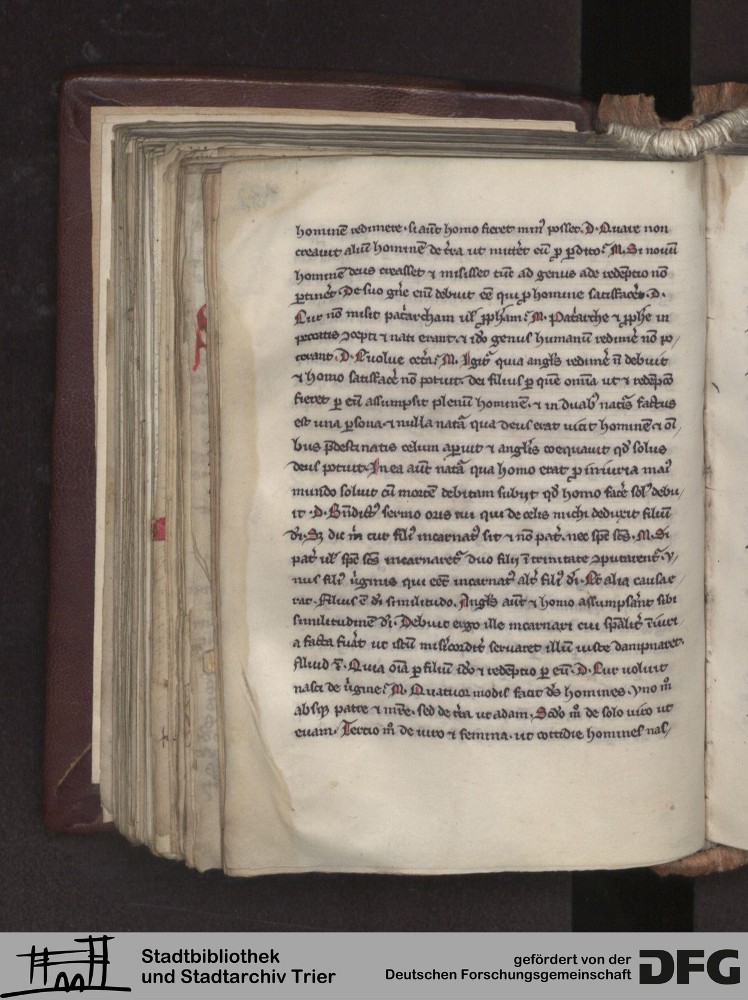 hominē redimere· si aūt homo fieret min᷒ posset· D· Quare non
creauit aliū hominē de t̄ra ut mitt̄et eū ꝓ ꝑdito· M· Si nouū
hominē deus creasset ⁊ misisset tūc ad genus ade redēptio nō
ꝑtin̄et· De suo gn̄e eni debuit eē̄ qui ꝓ homine satisfac̄et· D·
Cur nō misit pat͛archam ul̓ ꝓpham· M· Pat͛arche ⁊ ꝓphe in
peccatis ɔcepti ⁊ nati erant· ⁊ iđo genus humanū redim̄e nō po
terant· D· Euolue cet̄a· M· Igit᷑ quia angl̓s redim̄e n̄ debuit
⁊ homo satisfac̄e nō potuit· dei filius ꝑ quē om̄ia ut ⁊ redēpc̄o
fieret ꝑ eū assumpsit plenū hominē· ⁊ in duab᷒ natīs factus
est una ꝑsona· ⁊ in illa nat᷑a qua deus erat uicit hominē ⁊ oī
bus p̄destinatis celum aꝑuit ⁊ angl̓is coequauit qđ solus
deus potuit· In ea aūt nat᷑a qua homo erat ꝓ iniuria mai᷒
mundo soluit cū mortē debitam subiit qđ homo fac̄e sol᷒ debu
it· D· Bn̄dict᷒ sermo oris tui qui de celis michi deduxit filiū
dī· Sȝ dic m̄ cur fili᷒ incarnat᷒ sit ⁊ nō pat̄· nec spē scs̄· M· Si
pat̄ ul̓ spē scs̄ incarnaret᷑ duo filii ī trinitate ɔputarent᷑· V
nus fili᷒ ūginis qui eēt incarnat᷒ alt̄ fili᷒ dī· Et alia causa e
rat· Filius ē dī similitudo· Angl̓s aūt ⁊ homo assumpsānt sibi
similitudinē dī· Debuit ergo ille incarnari cui spālit̄ īiuri
a facta fuāt ut istū mis̄icordit̄ seruaret illū iuste dampnaret·
Aliud ē· Quia oīa ꝑ filiū iđo ⁊ redēptio ꝑ eū· D· Cur uoluit
nasci de ūgine· M· Quatuor modis facit ds̄ homines· Vno m̊
absqꝫ patre ⁊ mr̄e· sed de t̄ra ut adam· Scđo m̊ de solo uiro ut
euam· Tertio m̊ de uiro ⁊ femina· ut cottidie homines nas
Stadtbibliothek
und Stadtarchiv Trier
gefördert von der
Deutschen Forschungsgemeinschaft
DFG